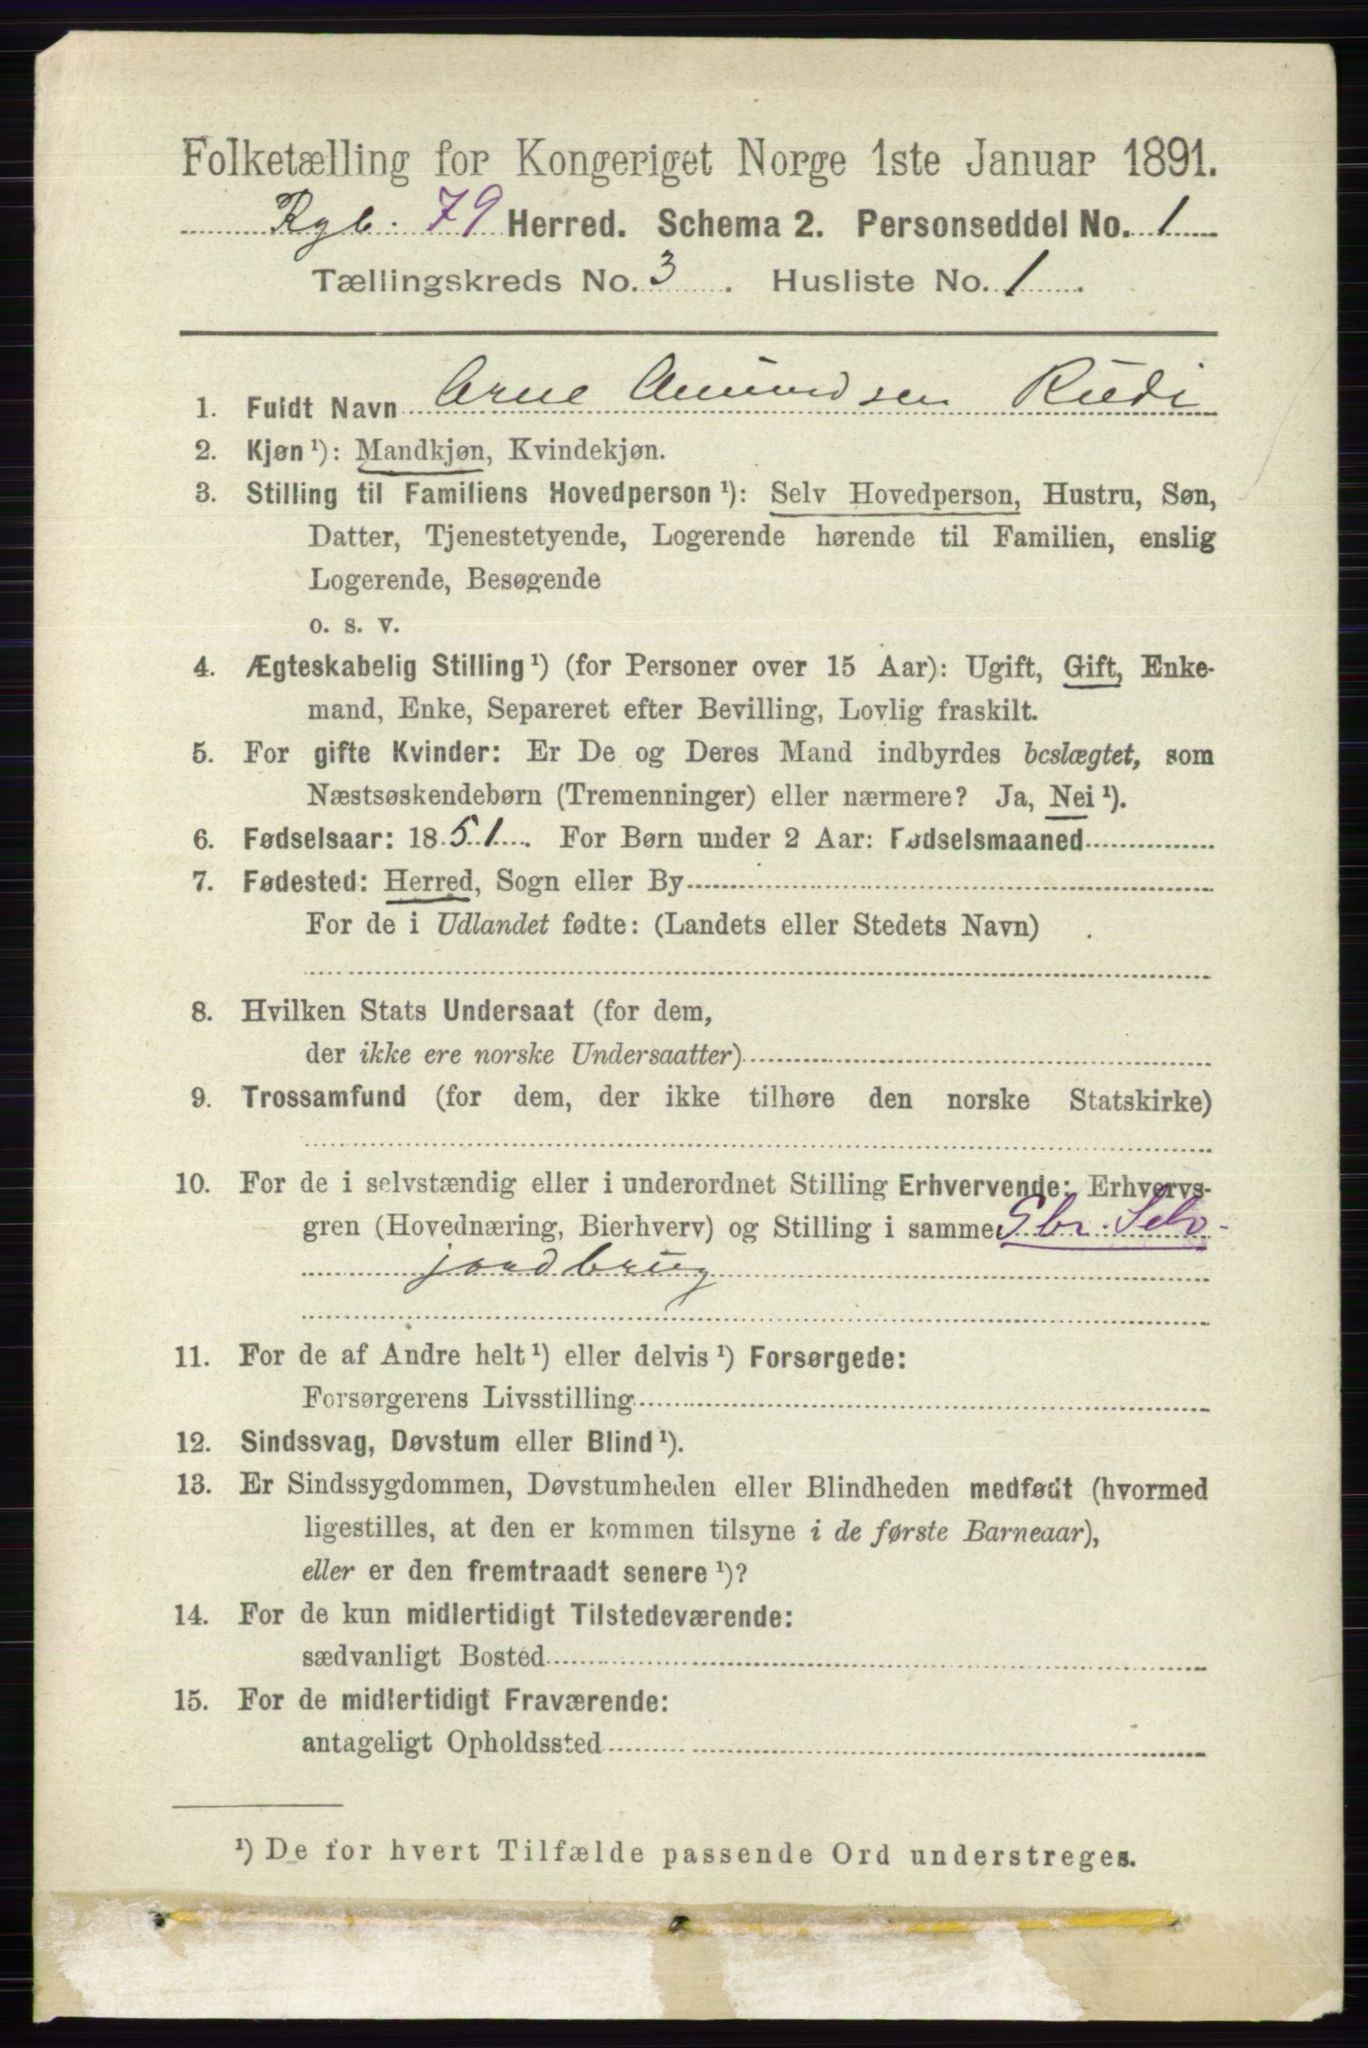 Folketælling for Kongeriget Norge 1ste Januar 1891.
Rgb. 79 Herred. Schema 2. Personseddel No. 1
Tællingskreds No. 3. Husliste No. 1.
1. Fuldt Navn Arne Amundsen Rudi
2. Kjøn ¹): Mandkjøn, Kvindekjøn.
3. Stilling til Familiens Hovedperson ¹): Selv Hovedperson, Hustru, Søn,
Datter, Tjenestetyende, Logerende hørende til Familien, enslig
Logerende, Besøgende
o. s. v.
4. Ægteskabelig Stilling ¹) (for Personer over 15 Aar): Ugift, Gift, Enke-
mand, Enke, Separeret efter Bevilling, Lovlig fraskilt.
5. For gifte Kvinder: Er De og Deres Mand indbyrdes beslægtet, som
Næstsøskendebørn (Tremenninger) eller nærmere? Ja, Nei ¹).
6. Fødselsaar: 1851. For Børn under 2 Aar: Fødselsmaaned
7. Fødested: Herred, Sogn eller By
For de i Udlandet fødte: (Landets eller Stedets Navn)
8. Hvilken Stats Undersaat (for dem,
der ikke ere norske Undersaatter)
9. Trossamfund (for dem, der ikke tilhøre den norske Statskirke)
10. For de i selvstændig eller i underordnet Stilling Erhvervende: Erhvervs-
gren (Hovednæring, Bierhverv) og Stilling i samme Gbr. Selv-
jordbrug
11. For de af Andre helt ¹) eller delvis ¹) Forsørgede:
Forsørgerens Livsstilling
12. Sindssvag, Døvstum eller Blind ¹).
13. Er Sindssygdommen, Døvstumheden eller Blindheden medfødt (hvormed
ligestilles, at den er kommen tilsyne i de første Barneaar),
eller er den fremtraadt senere ¹)?
14. For de kun midlertidigt Tilstedeværende:
sædvanligt Bosted
15. For de midlertidigt Fraværende:
antageligt Opholdssted
¹) De for hvert Tilfælde passende Ord understreges.